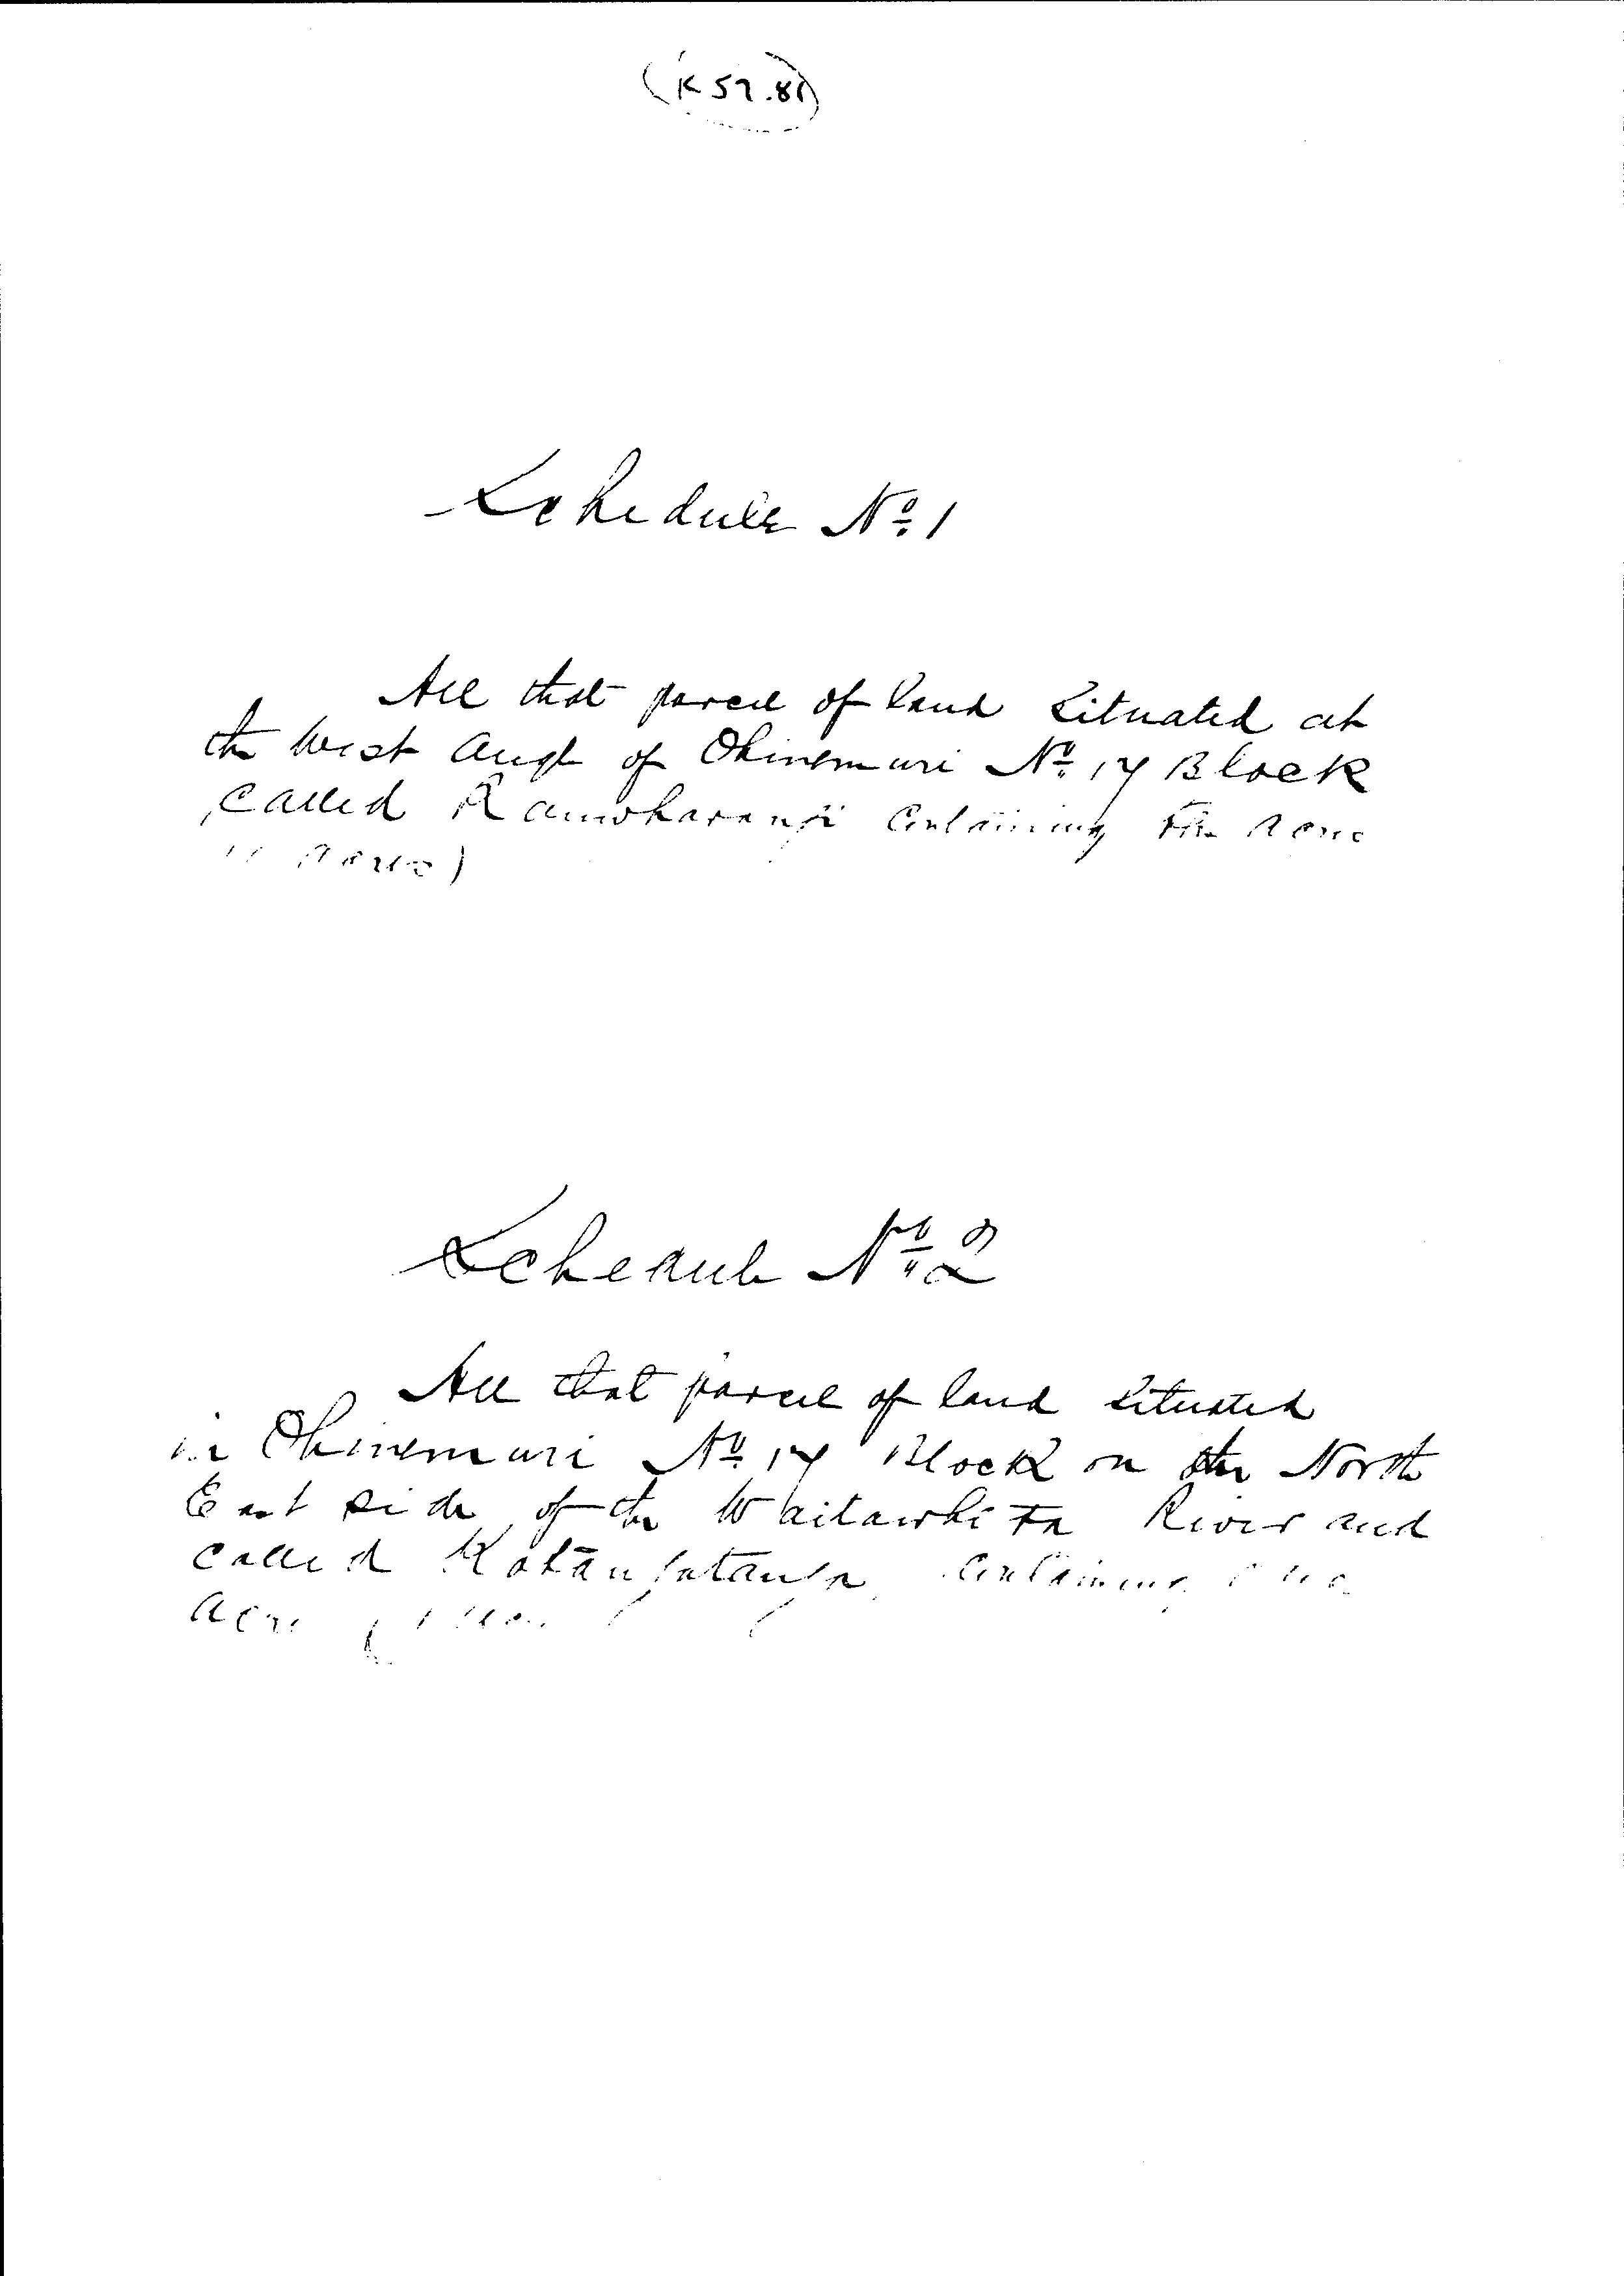 K 57.81
Schedule No. 1
All that parcel of land situated at
the West Angle of Ohinemuri No. 17 Block
called containing
Schedule No. 2
All that parcel of land situated
in Ohinemuri No. 17 Block on the North
East side of the Waitawheta River and
called containing
acre